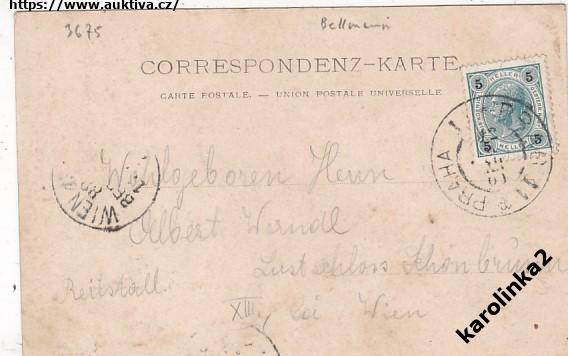 https://www.auktiva.cz/
3675
Bellmann
CORRESPONDENZ-KARTE
CARTE POSTALE. — UNION POSTALE UNIVERSELLE
5 HELLER 5
5 HELLER 5
PRAHA
WIEN
Wohlgeboren Herrn
Albert Werndl
Lustschloss Schönbrunn
Reitstall.
XIII. bei Wien
karolinka2